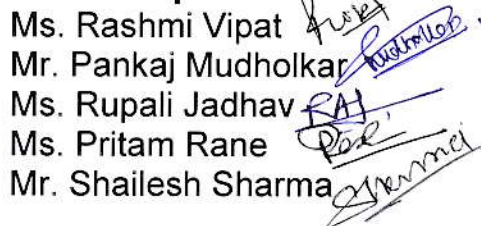 Ms. Rashmi Vipat
Mr. Pankaj Mudholkar Mudholkar
Ms. Rupali Jadhav RAJ
Ms. Pritam Rane
Mr. Shailesh Sharma Sharma